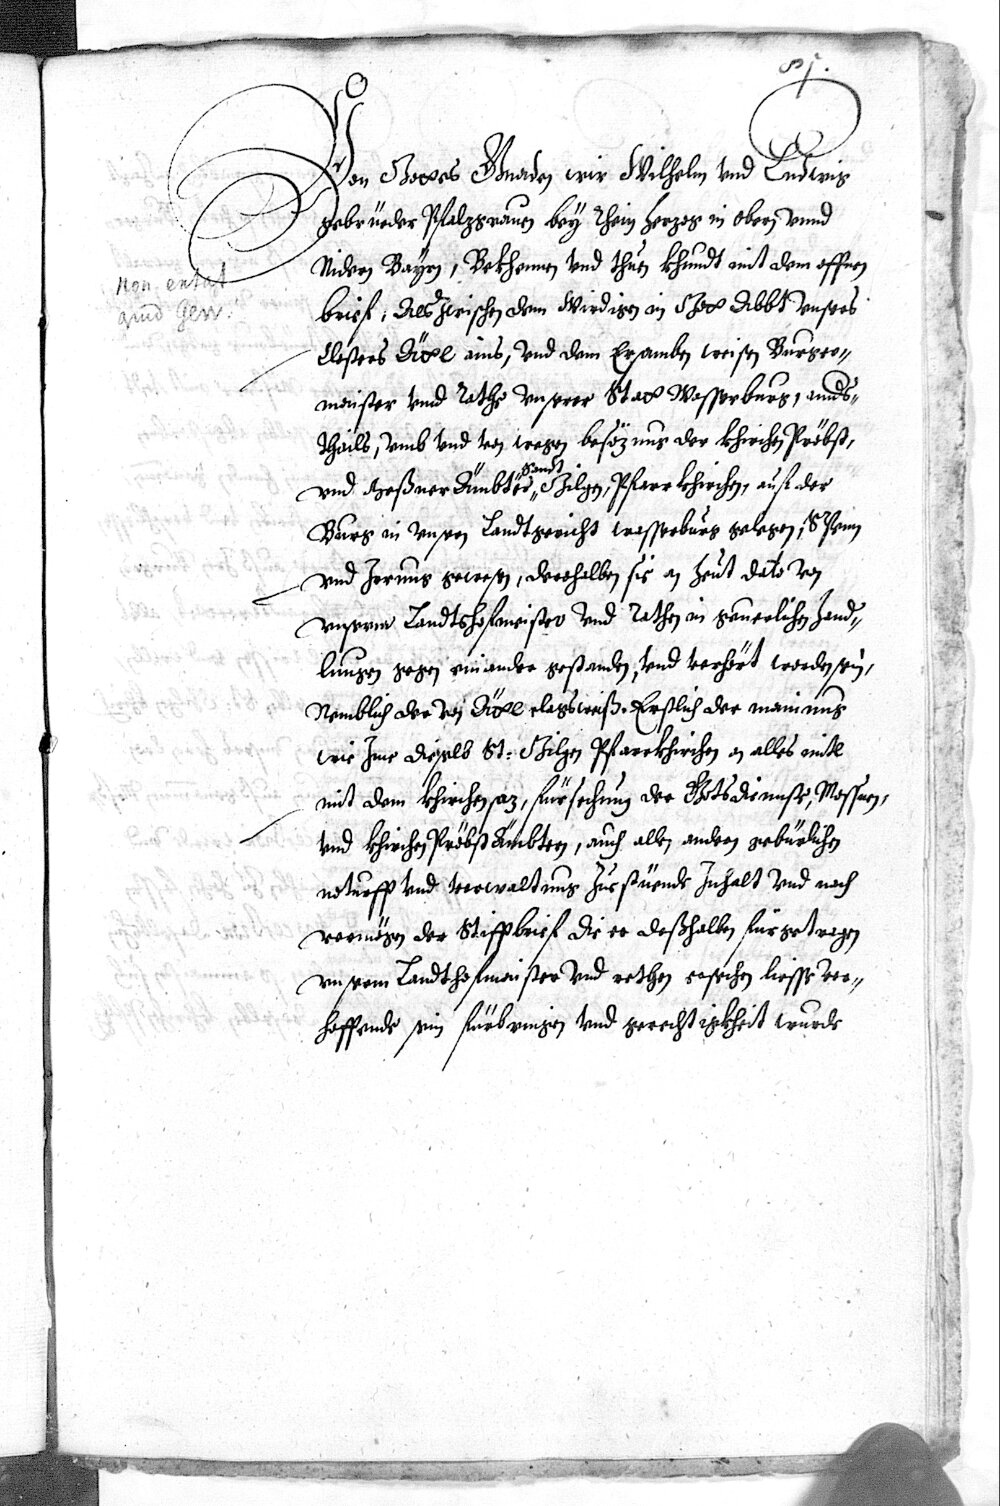 81.
Von Gottes Gnaden wir Wilhelm vnd Ludwig
gebrüeder Pfalzgrauen bey Rhein herzog in obern vnnd
Nidern Bayrn, Bekhennen vnd thuen khundt mit dem offnen
brief, Als zwischen dem Würdigen in Gott Abbt vnsers
Closters Ättl ains, vnd dem Ersamben weisen Burger„
maister vnnd Rathe vnserer Statt Wasserburg, annds„
thails, vmb vnd von wegen besözung der khirchen Pröbst,
vnd Meßner Ämbter„ Sanct Gilgen, Pfarrkhirchen, auf der
Burg in vnsern Landtgericht wasserburg gelegen, Spenn
vnd Irrung gewesen, derohalben sie an heut dato von
vnserm Landtshofmaister vnd Räthen in güetlichen hand„
lungen gegen einander gestanden, vnd verhört worden sein,
Nemblich der von Ättl clagsweiß. Erstlich der mainung
wie Ime dieselb St: Gilgen Pfarrkhirchen on alles mitl
mit dem khirchensaz, fürsechung der Gotsdiennste, Messnen,
vnd khirchen Pröbst Ämbtern, auch allen andern gebürlichen
noturfft vnd verwaltung Zuestüende Inhalt vnd nach
vermögen der Stifftbrief die er deßhalben fürgetragen
vnserm Landthofmaister vnd rethen ersechen liesse ver„
hoffende sein fürbringen vnd gerechtigkheit wurde
non entat
quid Gew: